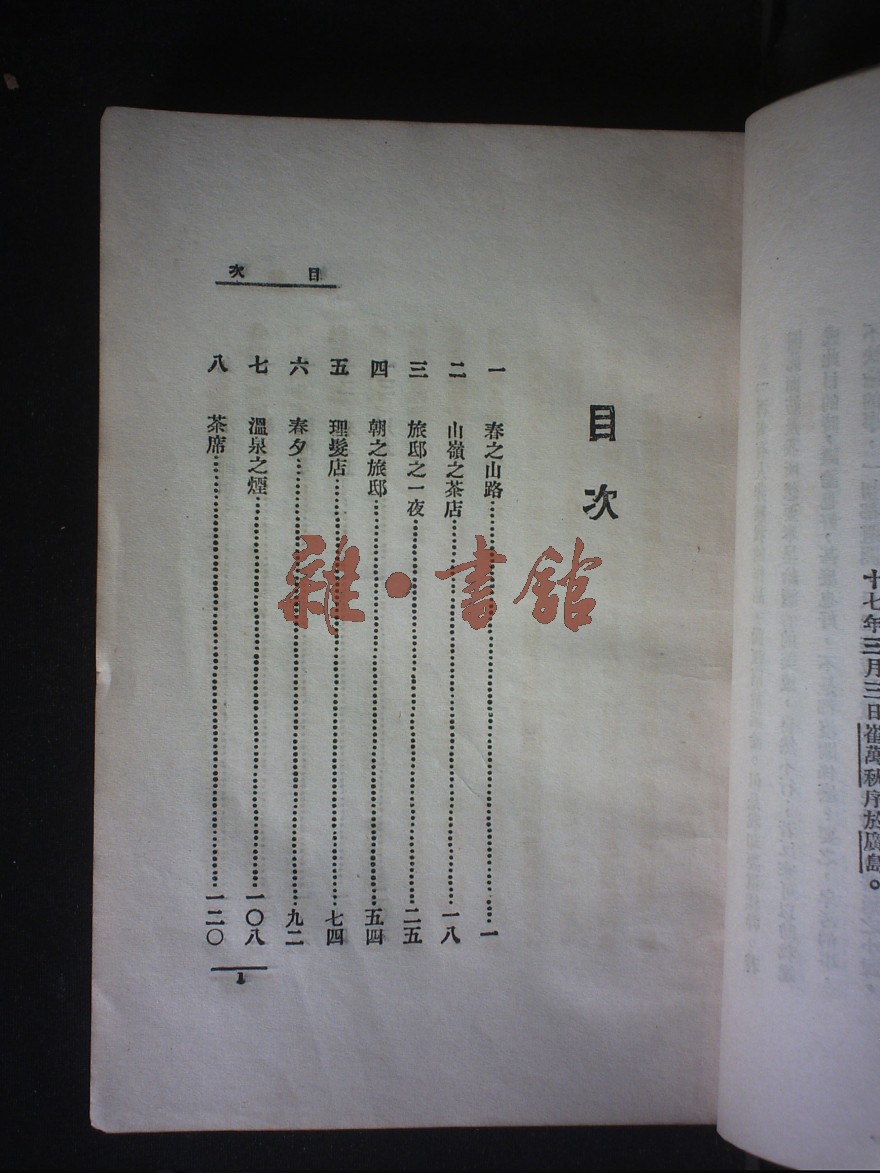 十七年三月三日崔萬秋序於廣島。
目次
一 春之山路……一
二 山嶺之茶店……一八
三 旅邸之一夜……二五
四 朝之旅邸……五四
五 理髮店……七四
六 春夕……九二
七 溫泉之煙……一〇八
八 茶席……一二〇
目 次
1
雜·書館